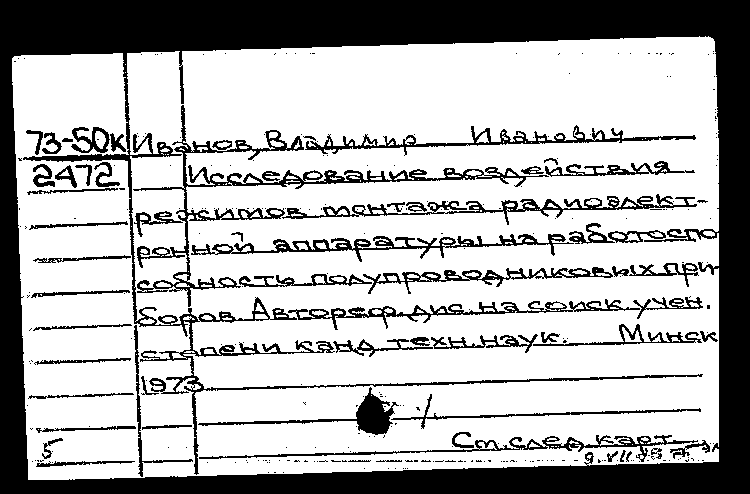 73-50к Иванов, Владимир Иванович
2472 Исследование воздействия
режимов монтажа радиоэлект-
ронной аппаратуры на работоспо
собность полупроводниковых при-
боров. Автореф. дис. на соиск. учен.
степени канд. техн. наук. Минск
1973
./.
5 См. след. карт.